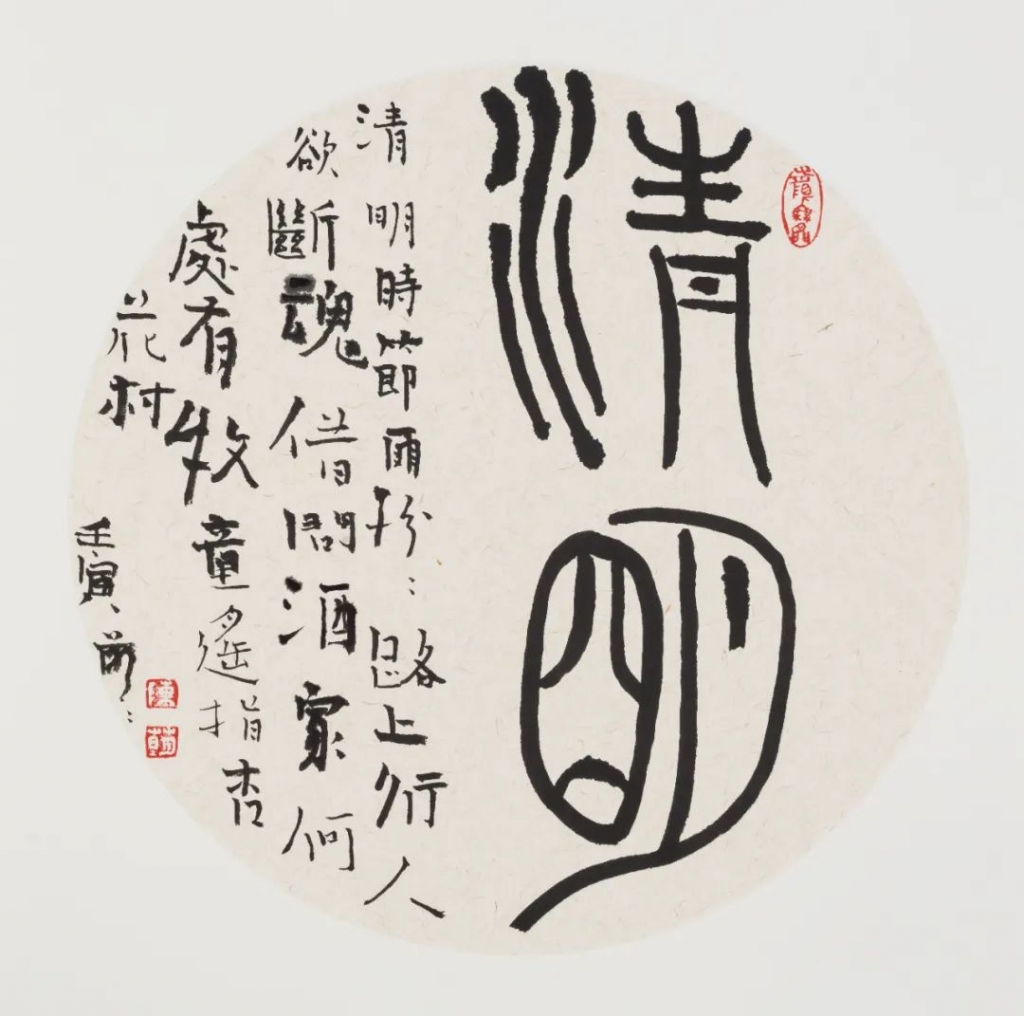 清明
清明時節雨紛:路上行人
欲斷魂借問酒家何
處有牧童遙指杏
花村
壬寅